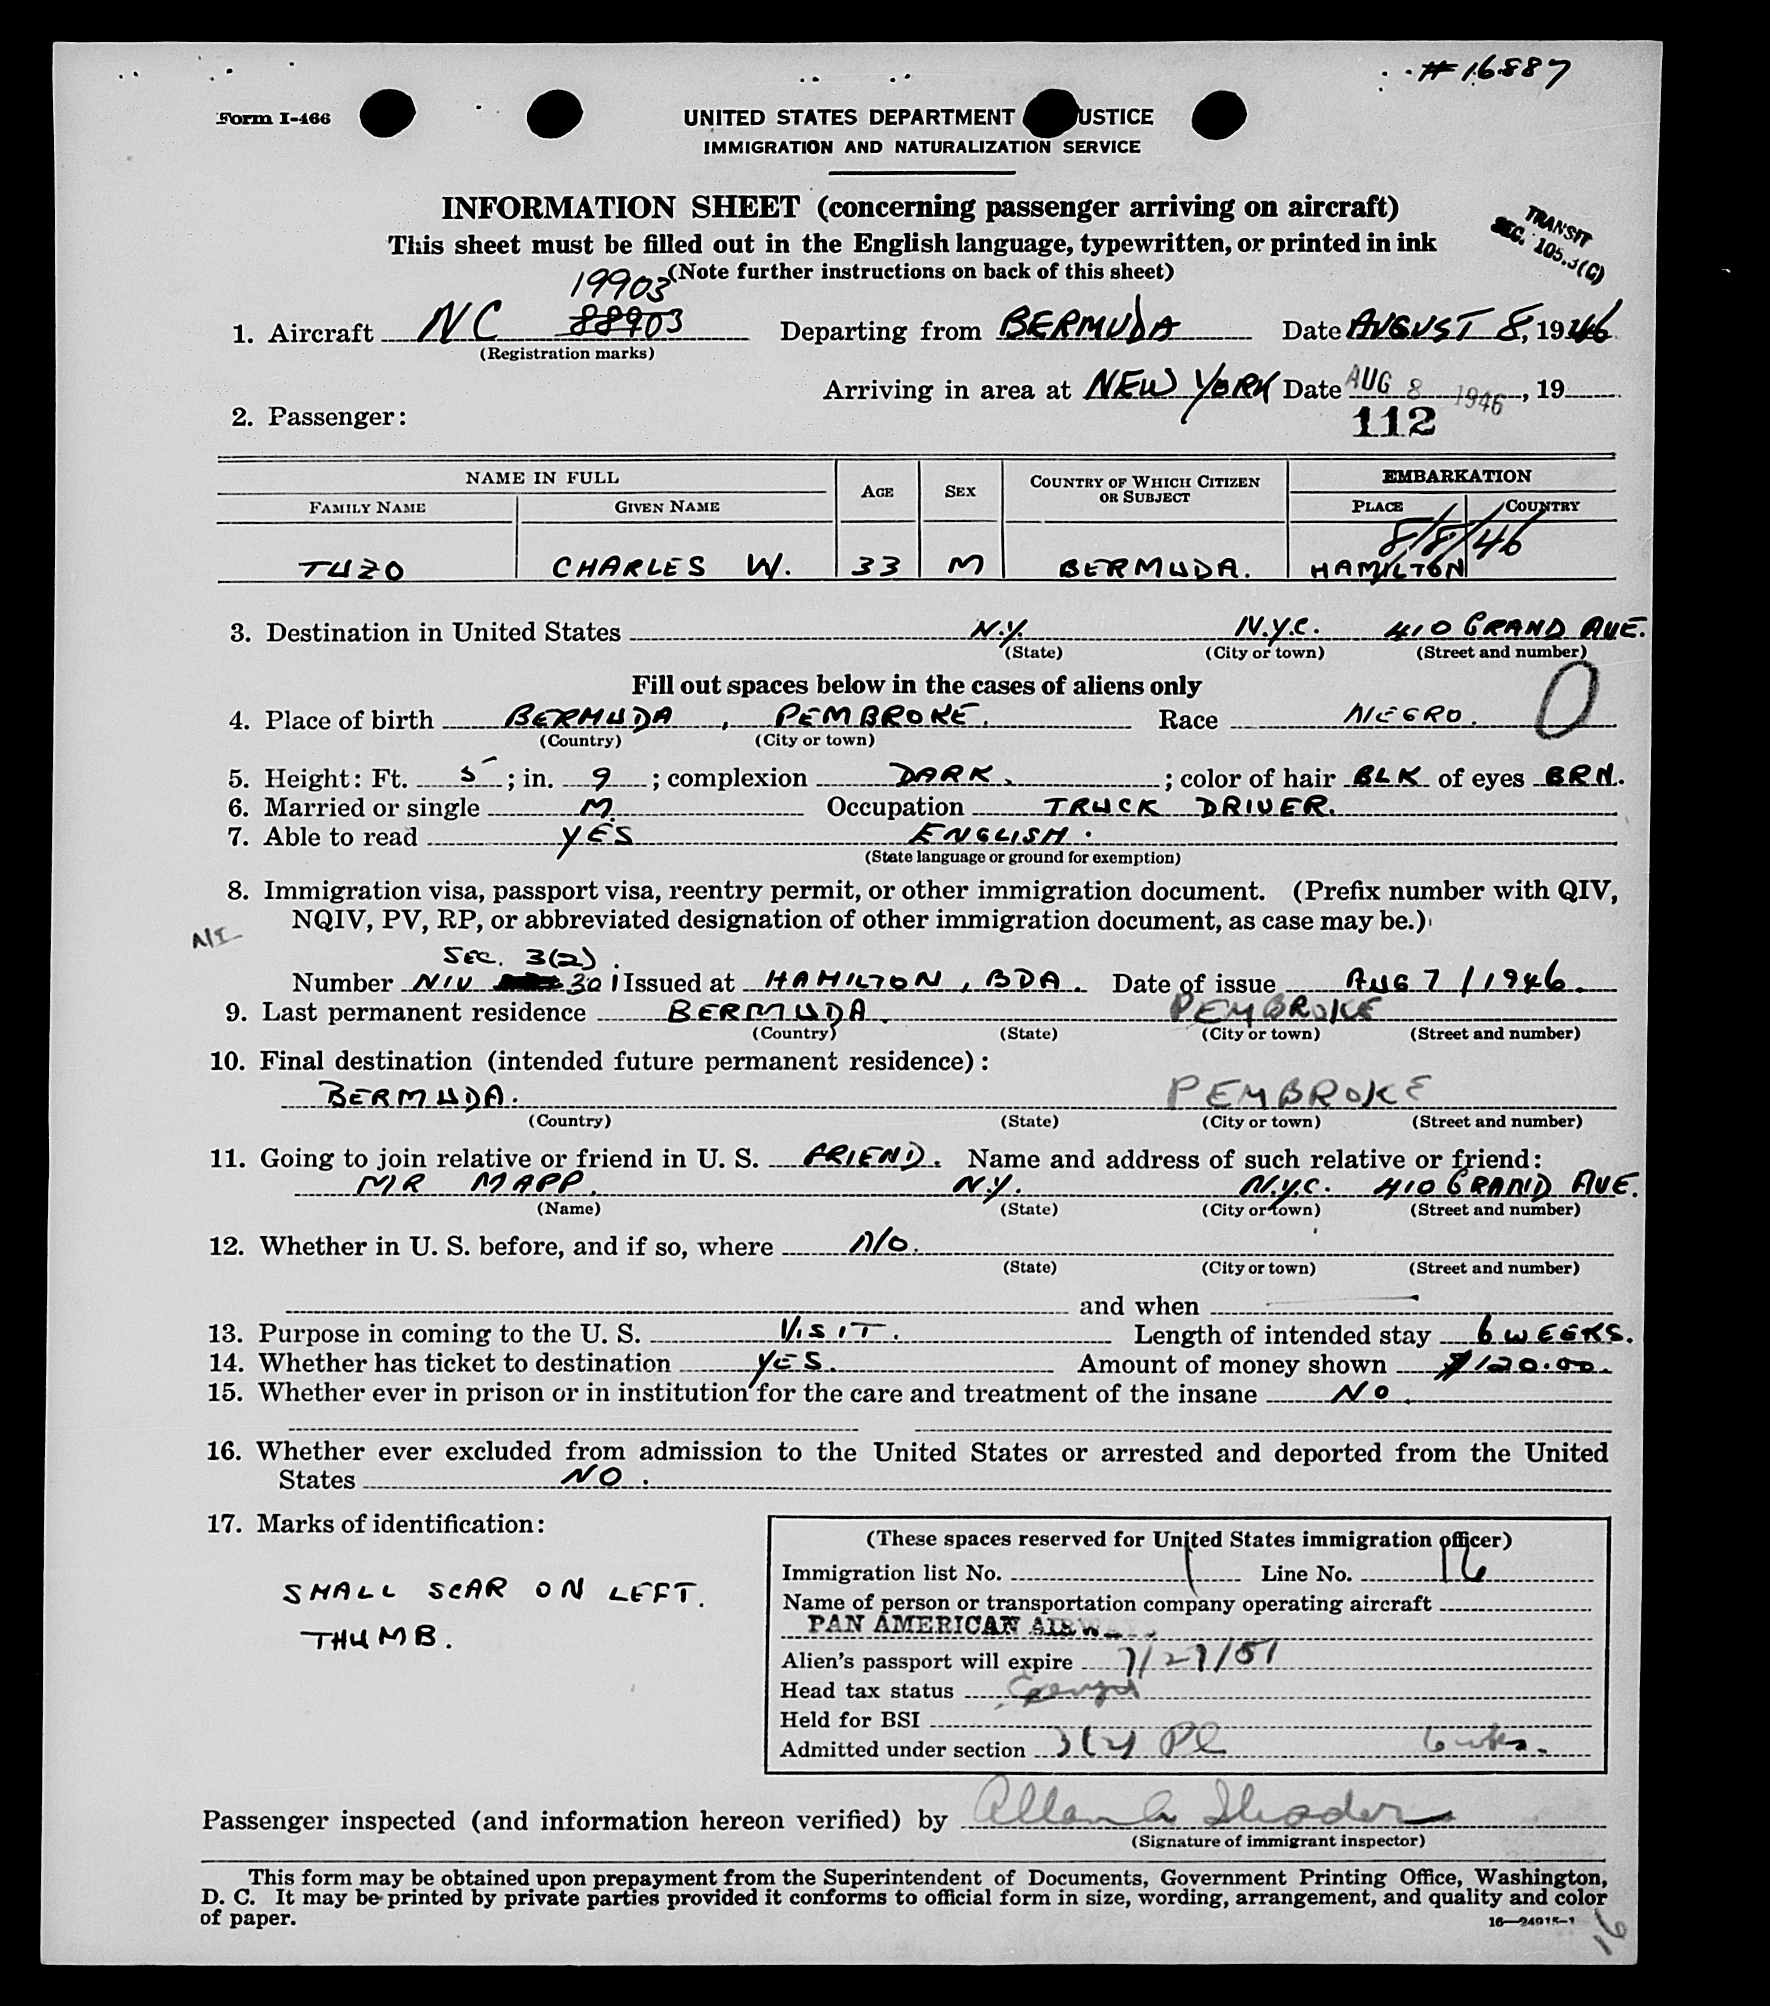 #16887
Form I-466
UNITED STATES DEPARTMENT USTICE
IMMIGRATION AND NATURALIZATION SERVICE
INFORMATION SHEET (concerning passenger arriving on aircraft)
This sheet must be filled out in the English language, typewritten, or printed in ink
(Note further instructions on back of this sheet)
TRANSIT
SEC. 105.3(C)
19903
1. Aircraft NC 88903 Departing from BERMUDA Date AUGUST 8, 1946
(Registration marks)
Arriving in area at NEW YORK Date AUG 8 1946, 19
2. Passenger: 112
NAME IN FULL AGE SEX COUNTRY OF WHICH CITIZEN OR SUBJECT EMBARKATION
FAMILY NAME GIVEN NAME PLACE COUNTRY
8/8/46
TUZO CHARLES W. 33 M BERMUDA. HAMILTON
3. Destination in United States N.Y. N.Y.C. 410 GRAND AVE.
(State) (City or town) (Street and number)
Fill out spaces below in the cases of aliens only
4. Place of birth BERMUDA, PEMBROKE. Race NEGRO. 0
(Country) (City or town)
5. Height: Ft. 5; in. 9; complexion DARK.; color of hair BLK of eyes BRN.
6. Married or single M. Occupation TRUCK DRIVER.
7. Able to read YES ENGLISH.
(State language or ground for exemption)
8. Immigration visa, passport visa, reentry permit, or other immigration document. (Prefix number with QIV,
NQIV, PV, RP, or abbreviated designation of other immigration document, as case may be.)
SEC. 3(2).
Number NIV 301 Issued at HAMILTON, BDA. Date of issue AUG 7/1946.
9. Last permanent residence BERMUDA. PEMBROKE
(Country) (State) (City or town) (Street and number)
10. Final destination (intended future permanent residence):
BERMUDA. PEMBROKE
(Country) (State) (City or town) (Street and number)
11. Going to join relative or friend in U. S. FRIEND. Name and address of such relative or friend:
MR MAPP. N.Y. N.Y.C. 410 GRAND AVE.
(Name) (State) (City or town) (Street and number)
12. Whether in U. S. before, and if so, where NO.
(State) (City or town) (Street and number)
and when
13. Purpose in coming to the U. S. VISIT. Length of intended stay 6 WEEKS.
14. Whether has ticket to destination YES. Amount of money shown $120.00.
15. Whether ever in prison or in institution for the care and treatment of the insane NO.
16. Whether ever excluded from admission to the United States or arrested and deported from the United
States NO.
17. Marks of identification:
SMALL SCAR ON LEFT.
THUMB.
(These spaces reserved for United States immigration officer)
Immigration list No. 1 Line No. 16
Name of person or transportation company operating aircraft
PAN AMERICAN AIRWAYS
Alien's passport will expire 7/27/51
Head tax status
Held for BSI
Admitted under section 3(2) Pl 6 wks.
Passenger inspected (and information hereon verified) by
(Signature of immigrant inspector)
This form may be obtained upon prepayment from the Superintendent of Documents, Government Printing Office, Washington,
D. C. It may be printed by private parties provided it conforms to official form in size, wording, arrangement, and quality and color
of paper.
16—24915-1
16